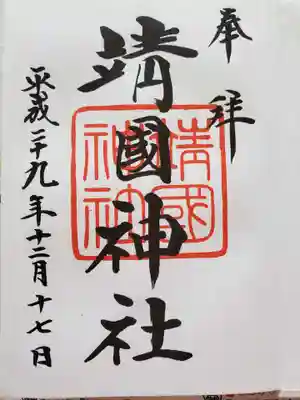 奉拝
靖國神社
靖國神社
平成二十九年十二月十七日